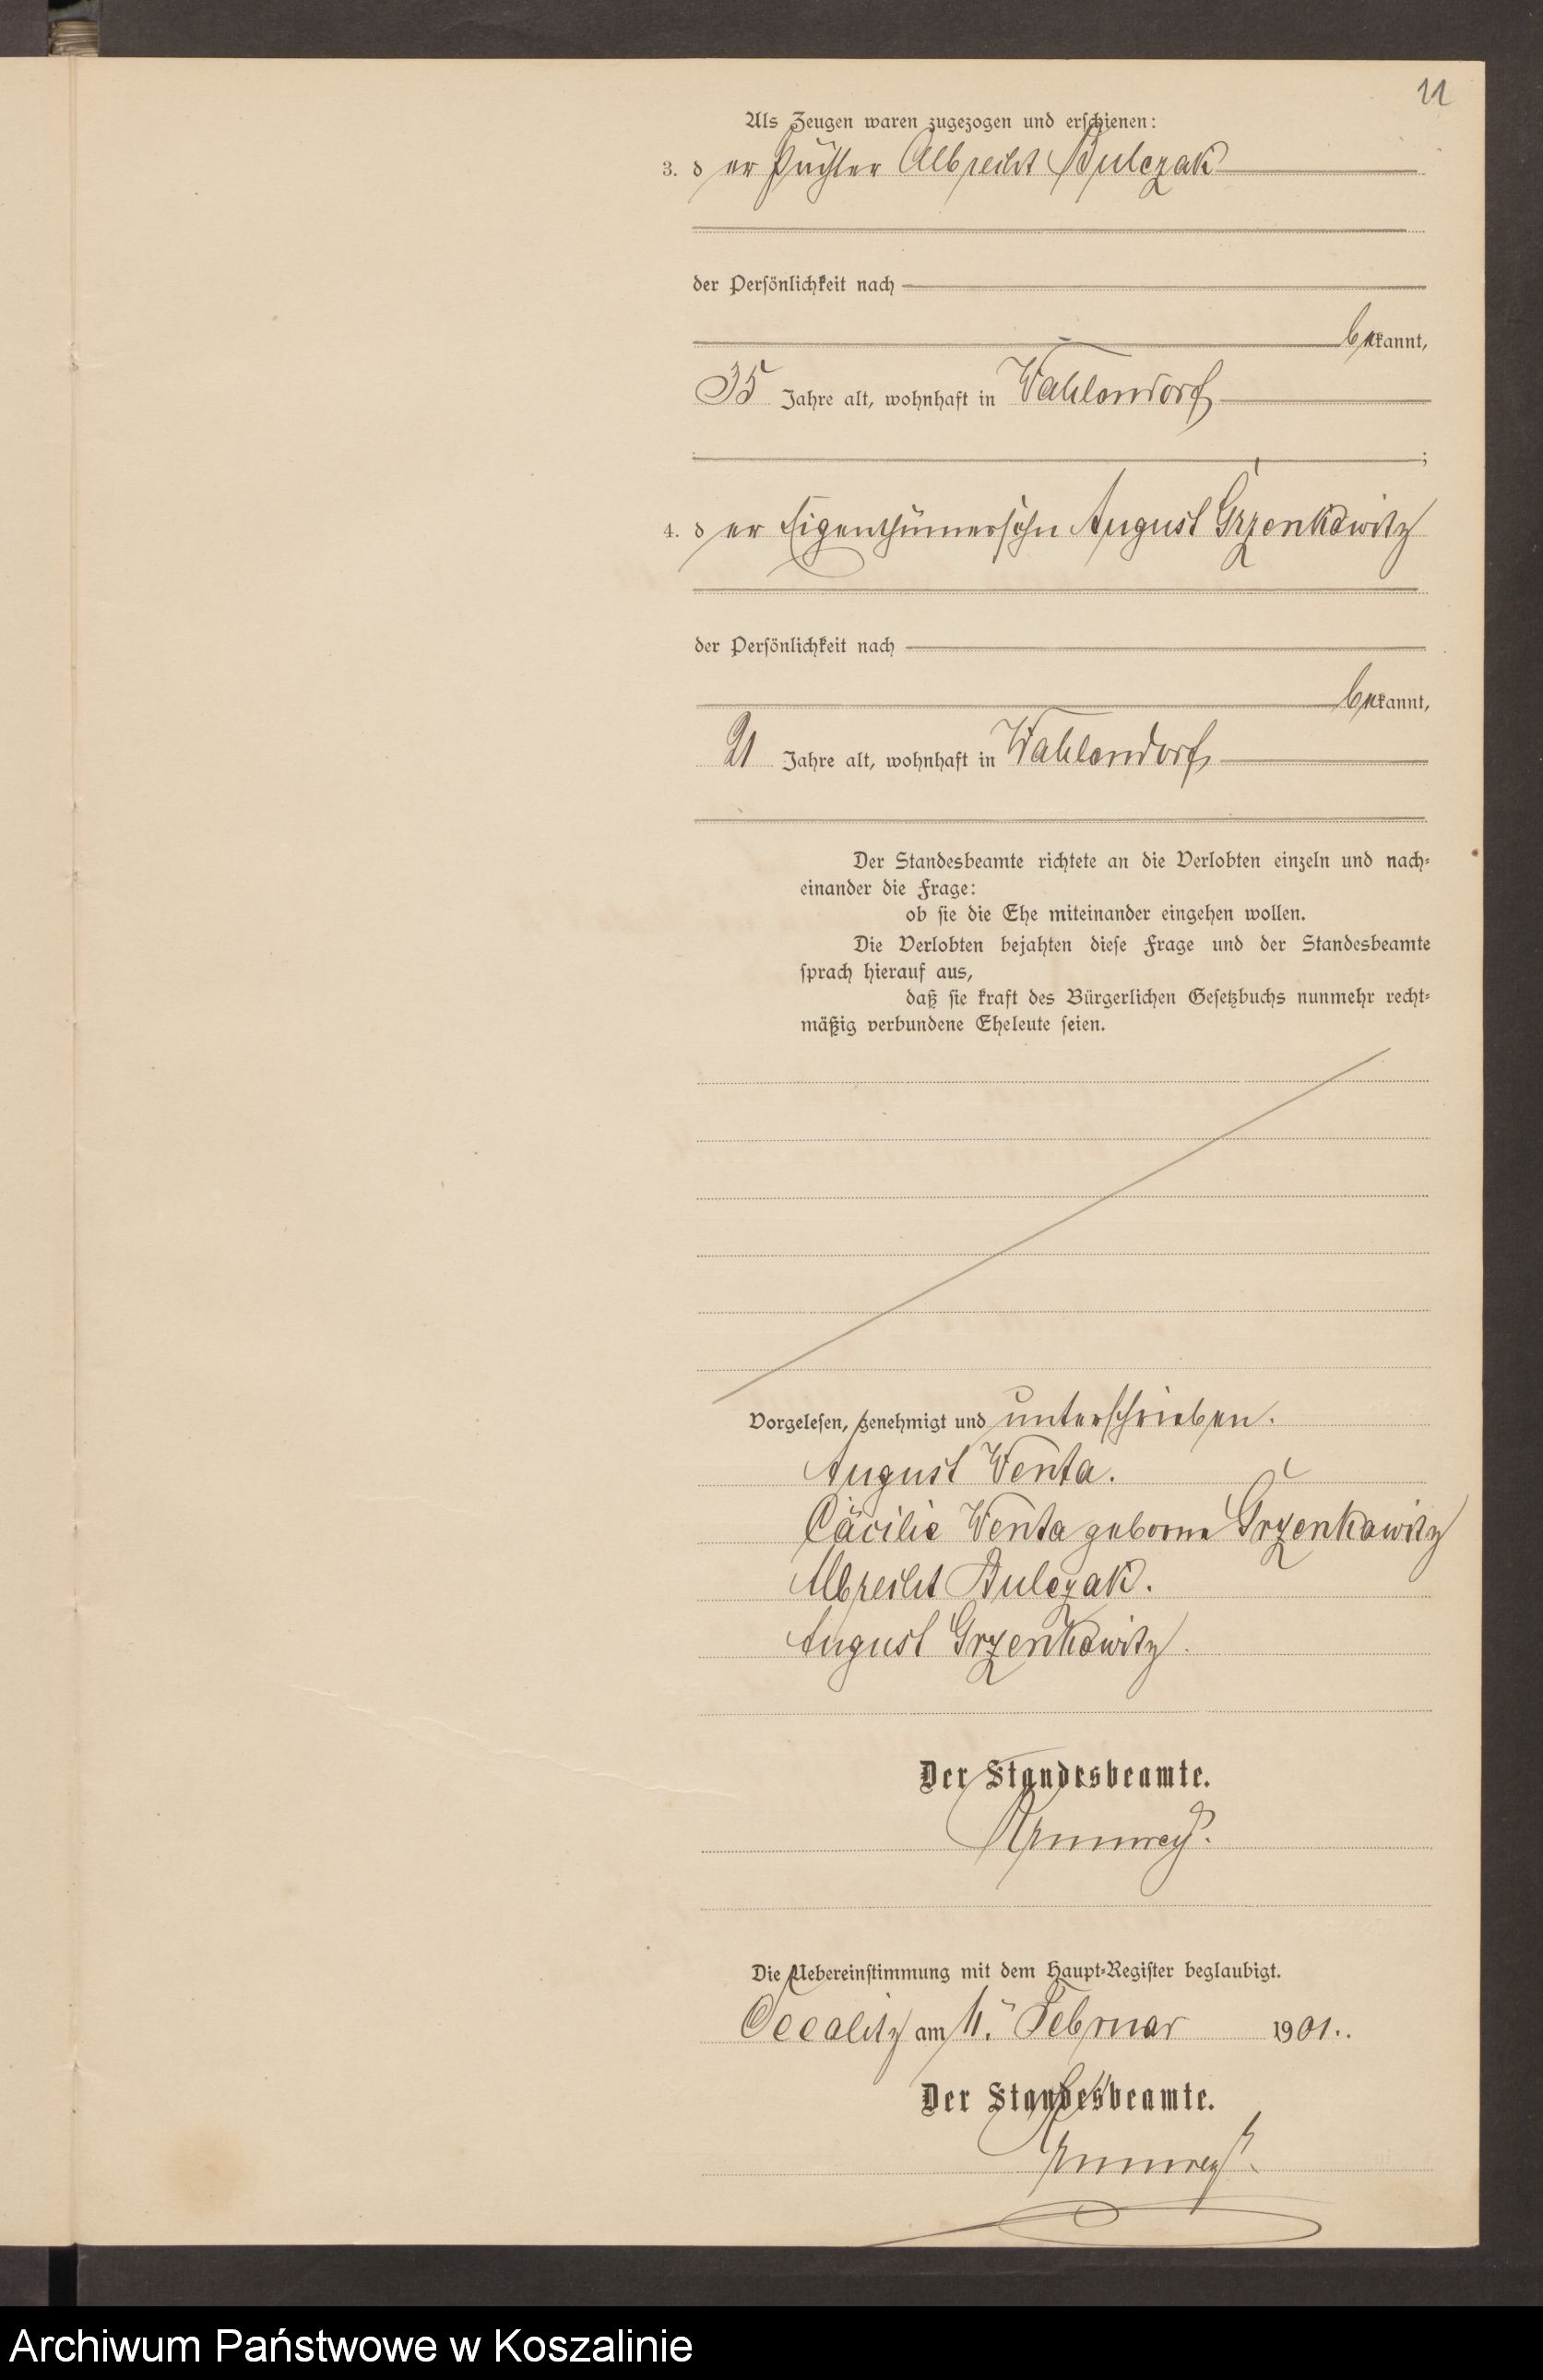 11
Als Zeugen waren zugezogen und erschienen:
3. der Pächter Albrecht Bulczak
der Persönlichkeit nach
bekannt,
35 Jahre alt, wohnhaft in Wahlendorf
;
4. der Eigenthümersohn August Grzenkowitz
der Persönlichkeit nach
bekannt,
21 Jahre alt, wohnhaft in Wahlendorf
Der Standesbeamte richtete an die Verlobten einzeln und nach-
einander die Frage:
ob sie die Ehe miteinander eingehen wollen.
Die Verlobten bejahten diese Frage und der Standesbeamte
sprach hierauf aus,
daß sie kraft des Bürgerlichen Gesetzbuchs nunmehr recht-
mäßig verbundene Eheleute seien.
Vorgelesen, genehmigt und unterschrieben.
August Wenta.
Cäcilie Wenta geborne Grzenkowitz
Albrecht Bulczak.
August Grzenkowitz.
Der Standesbeamte.
Die Uebereinstimmung mit dem Haupt-Register beglaubigt.
Occalitz am 11. Februar 1901..
Der Standesbeamte.
Archiwum Państwowe w Koszalinie